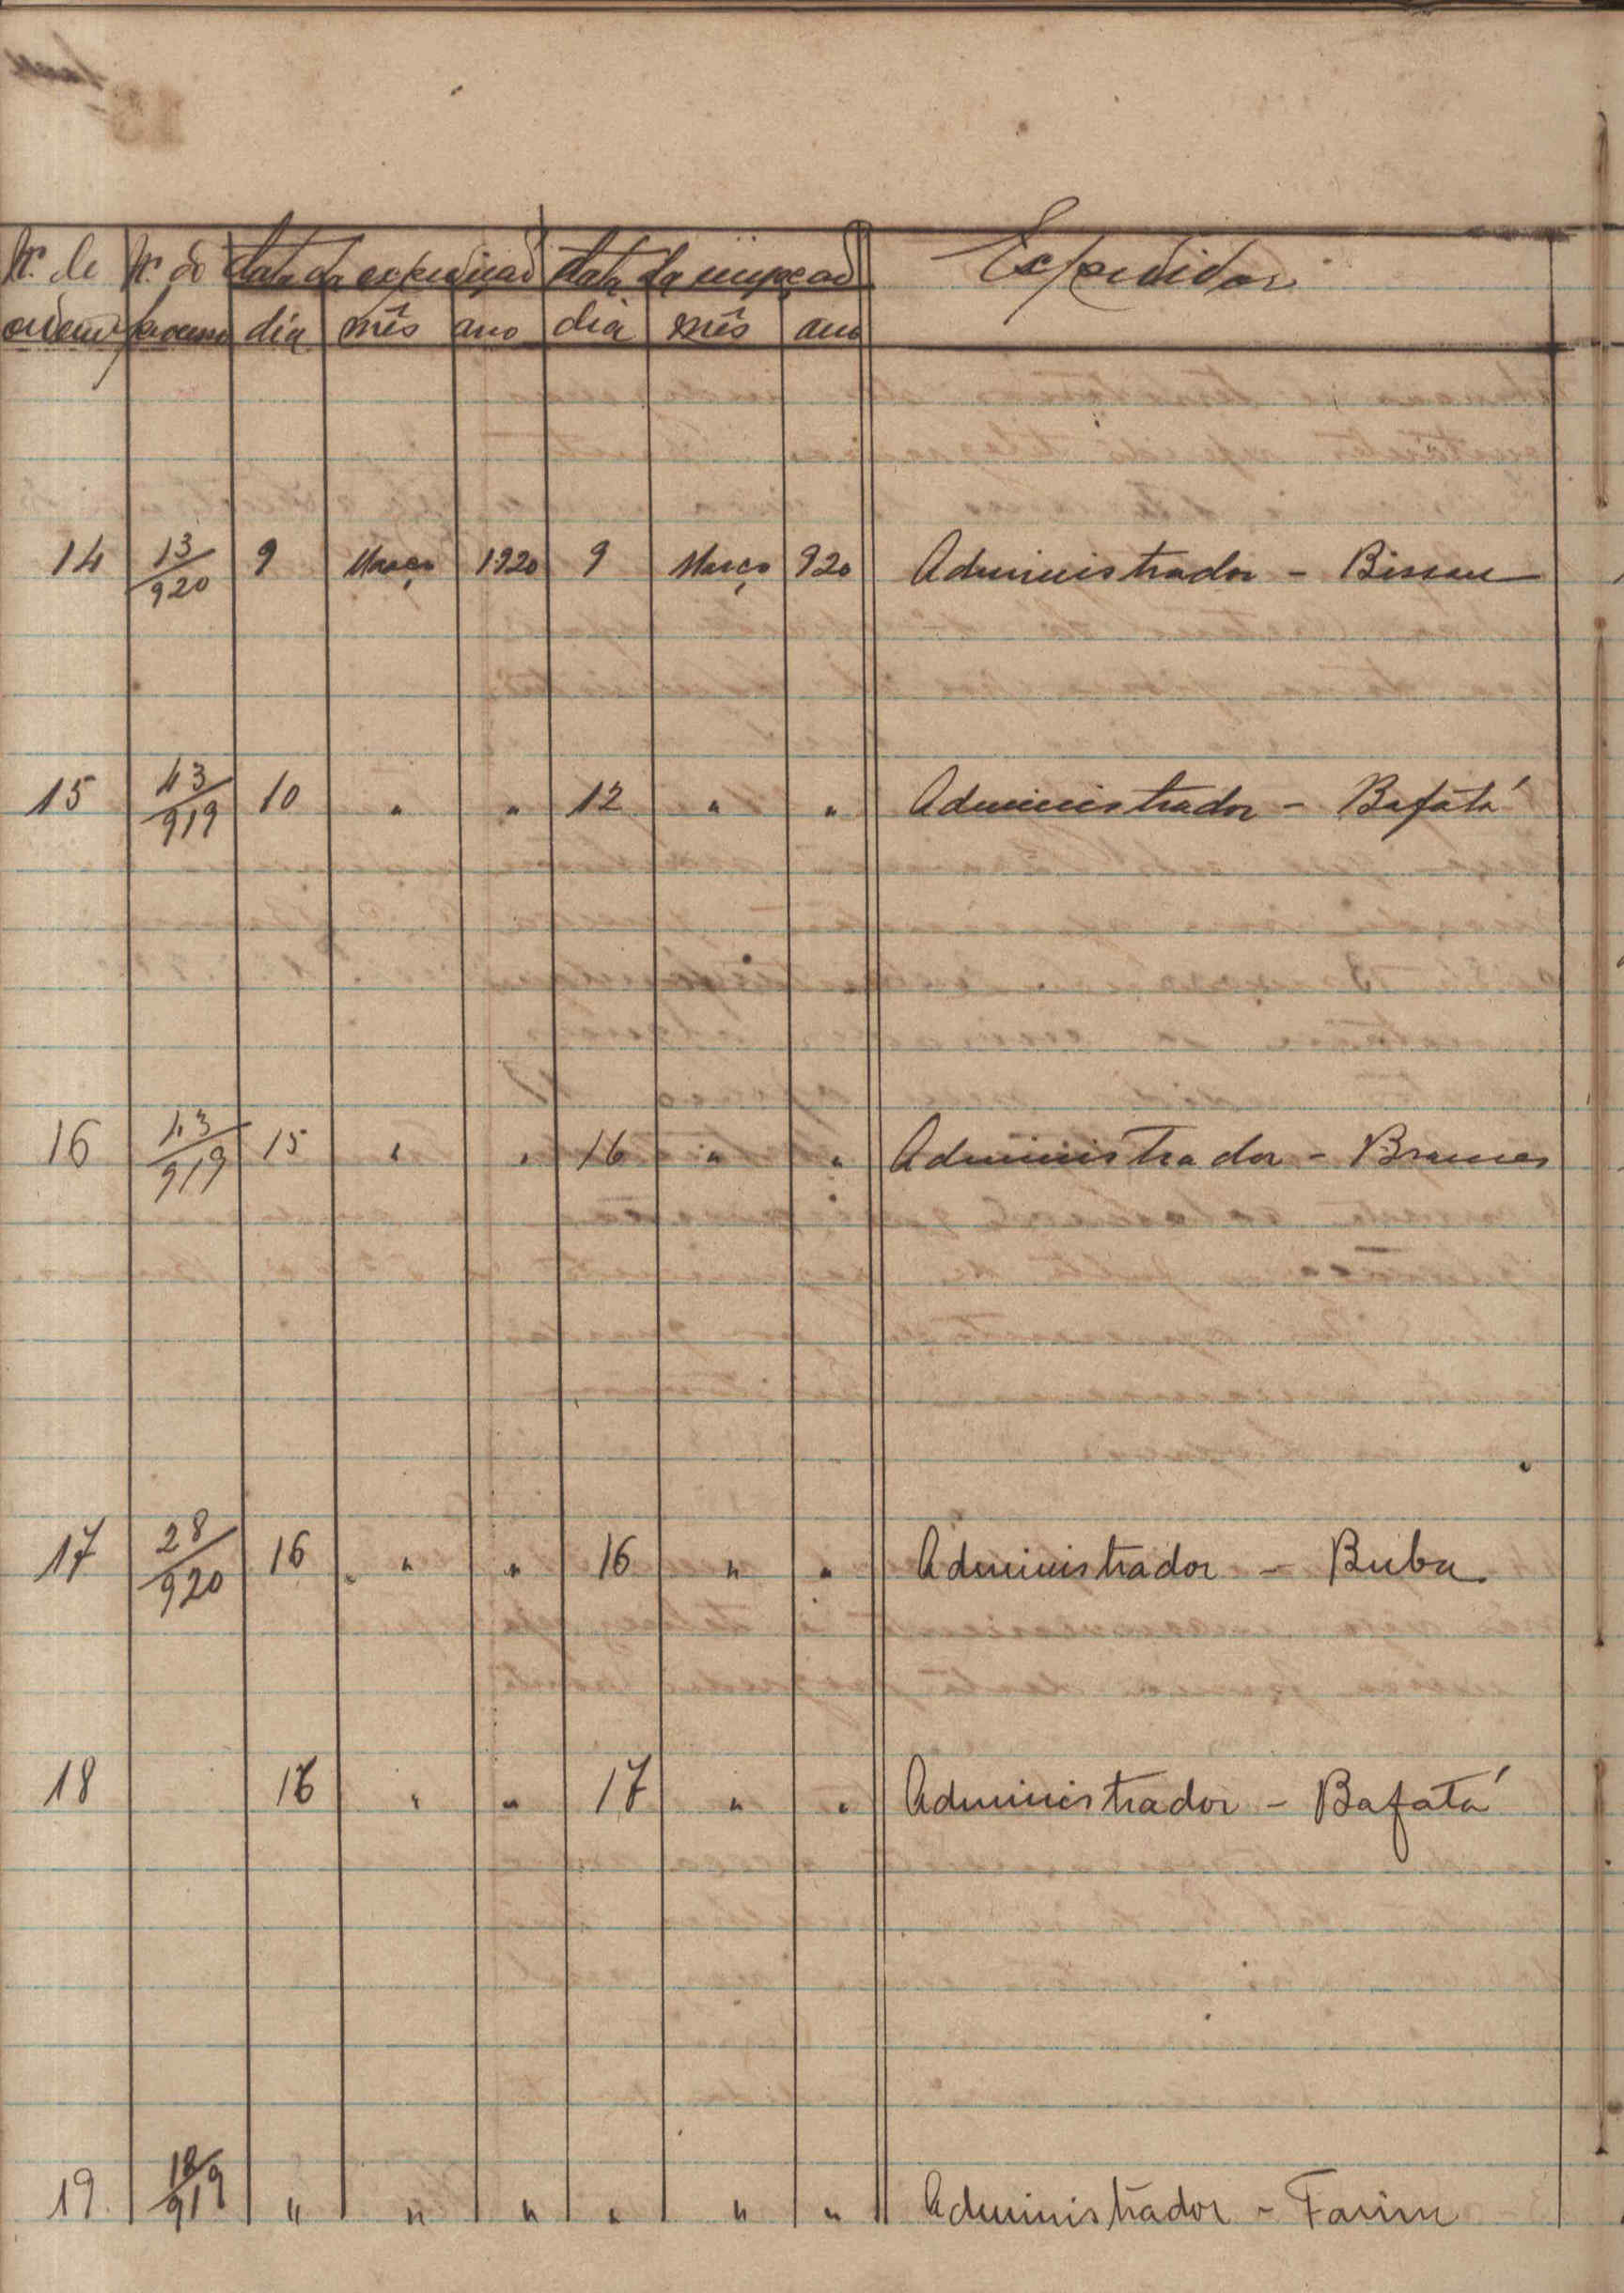 Nº de Nº do data da expedição data da recepção Expedidor
ordem processo dia mês ano dia mês ano
14 13/920 9 Março 1920 9 Março 920 Administrador - Bissau
15 43/919 10 " " 12 " " Administrador - Bafatá
16 43/919 15 " " 16 " " Administrador - Brames
17 28/920 16 " " 16 " " Administrador - Buba
18 16 " " 17 " " Administrador - Bafatá
19 18/919 " " " " " " Administrador - Farim